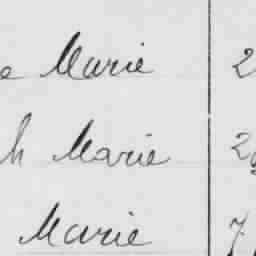 e Marie 2
h Marie 2
Marie 7